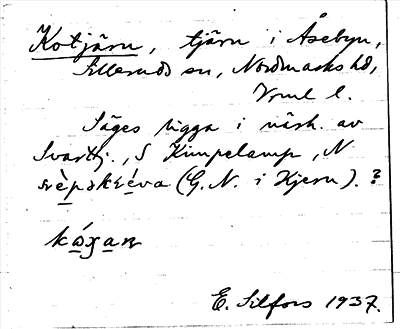 Kotjärn, tjärn i Åsebyn,
Silleruds sn, Nordmarks hd,
Vrml l.
Säges ligga i närh. av
Svarttj., S Kimpelamp, N
(G. N. i Hjern). ?
E. Silfors 1937.